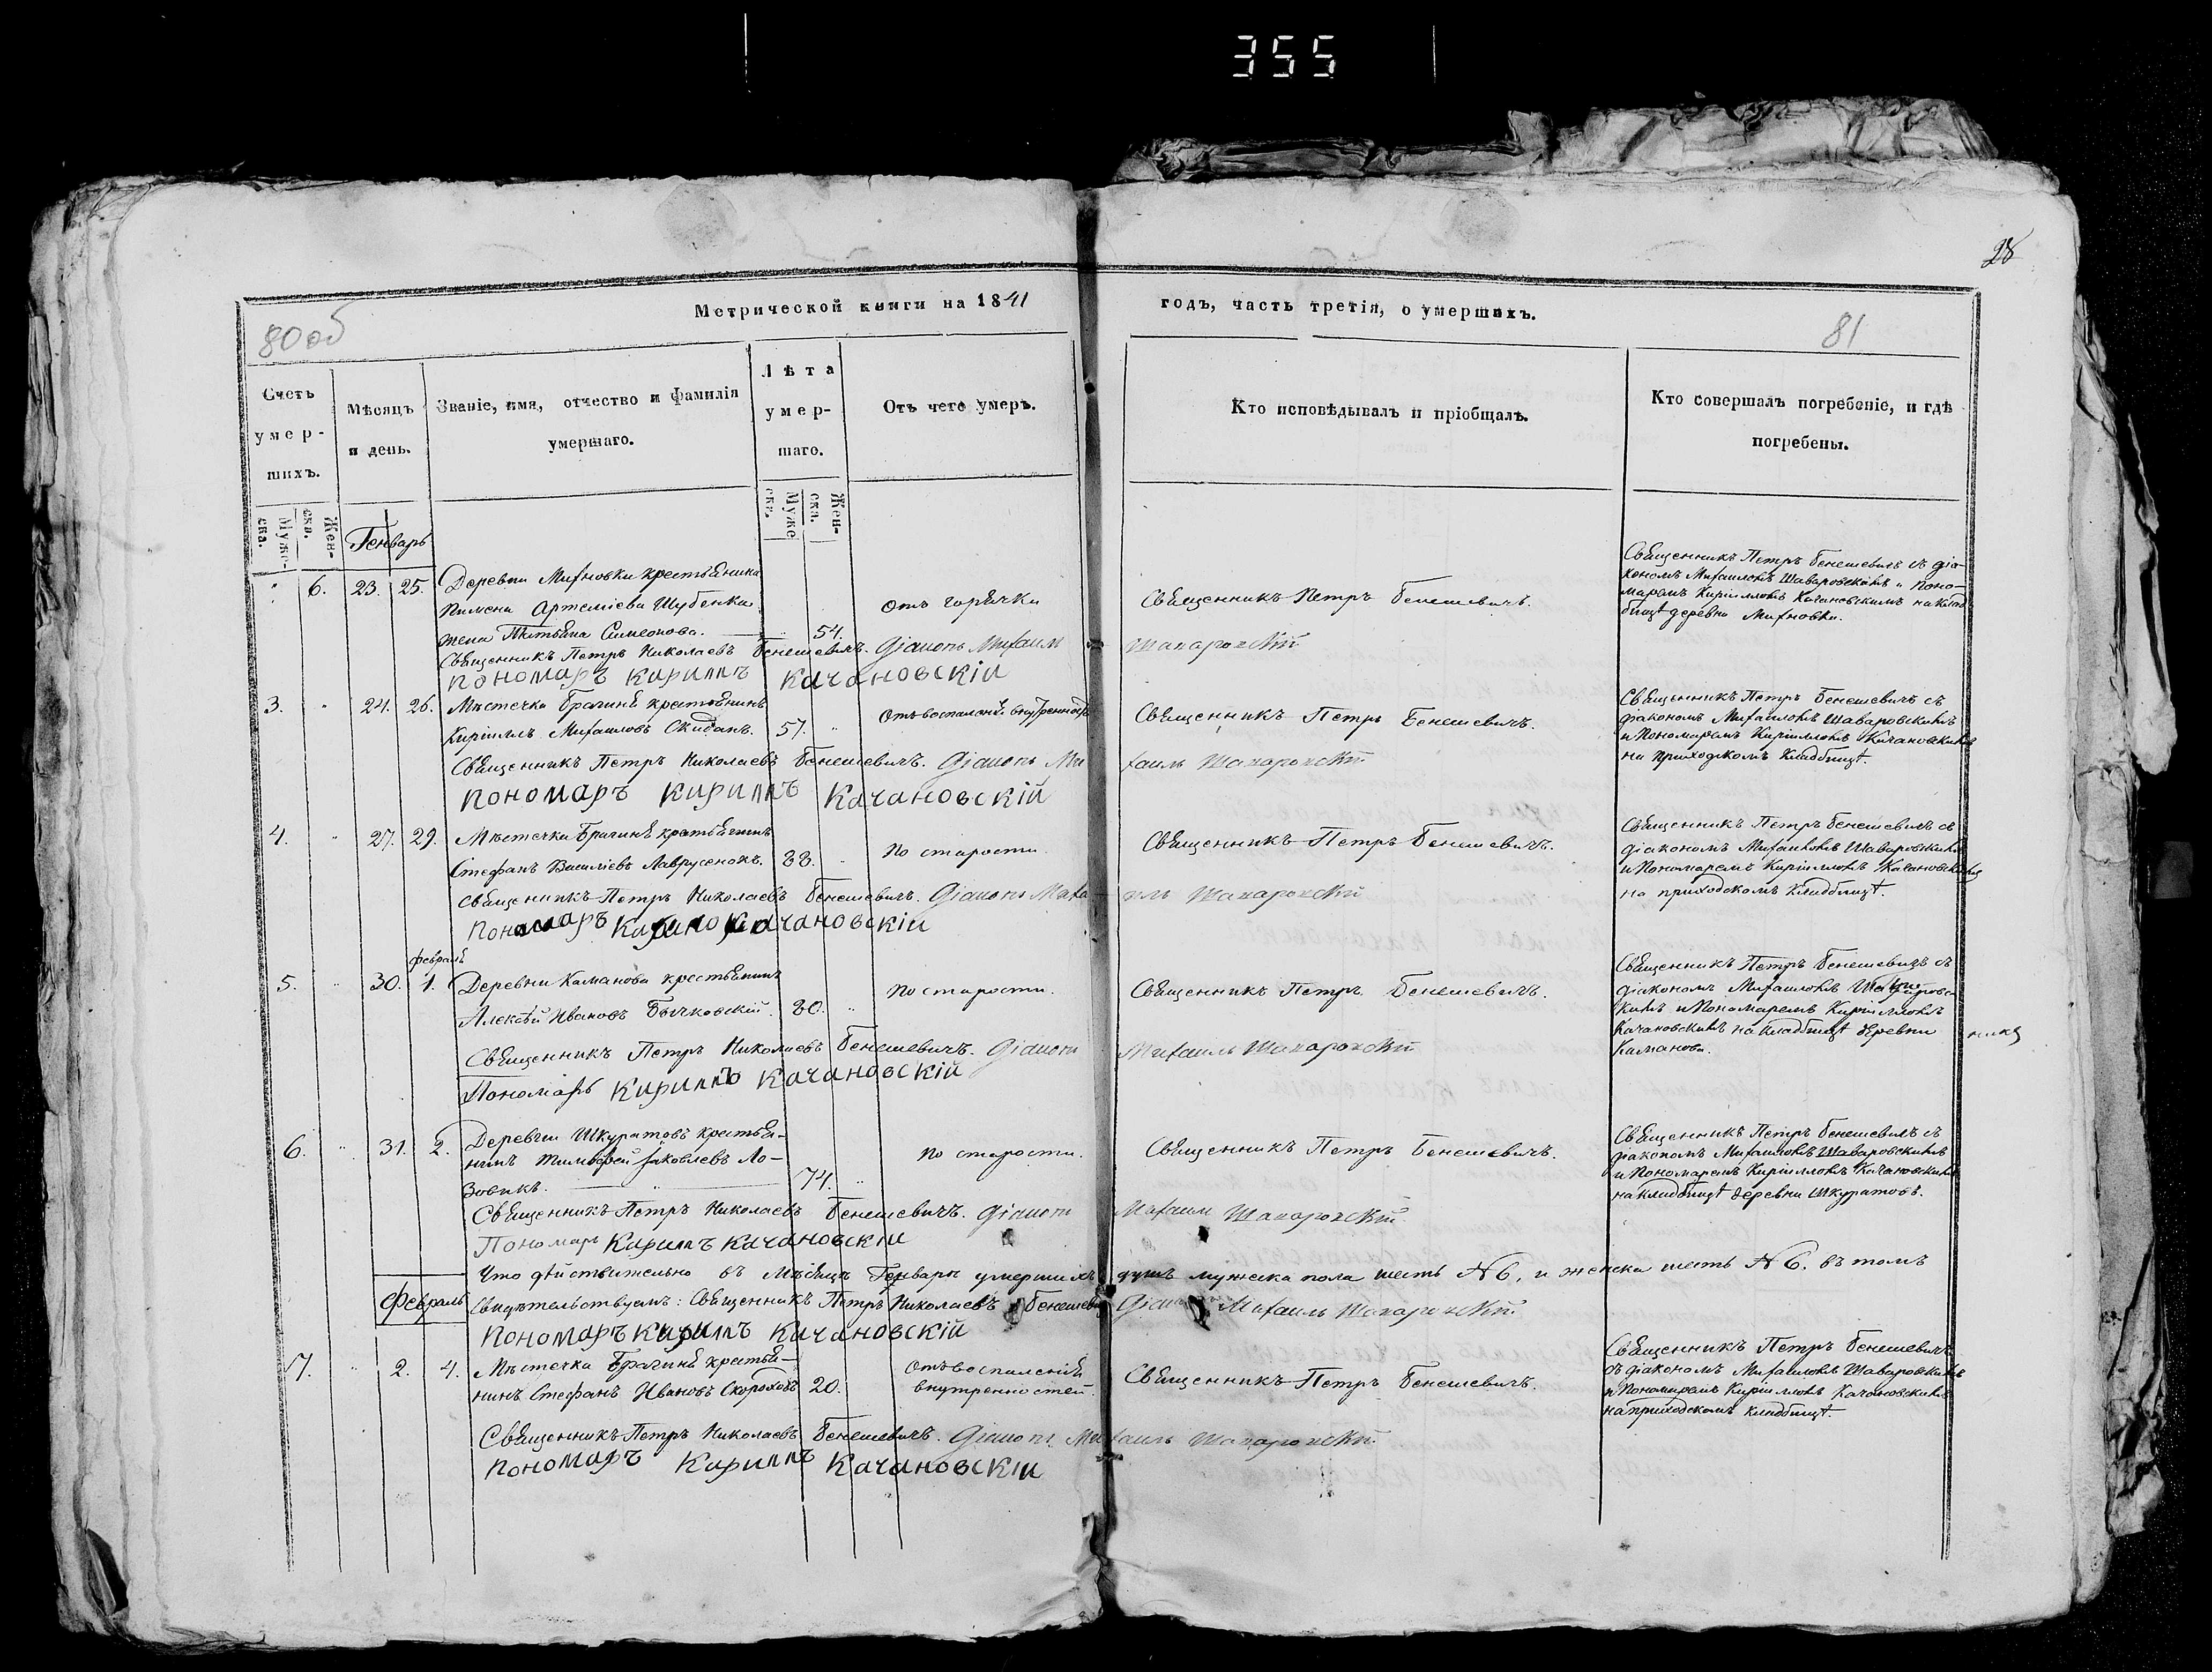 355
28
Метрической книги на 1841
годъ, часть третія, о умершихъ.
80 об
81
Счетъ умершихъ.
Мѣсяцъ и день.
Званіе, имя, отчество и фамилія умершаго.
Лѣта умершаго.
Отъ чего умеръ.
Кто исповѣдывалъ и пріобщалъ.
Кто совершалъ погребеніе, и гдѣ погребены.
Мужеска.
Женска.
Мужеска.
Женска.
Генварь
6. 23. 25. Деревни Михновки крестьянина
Пимена Артеміева Шубенка
жена Татьяна Симеонова. 54.
отъ горячки
Священникъ Петръ Бенешевичъ.
Священникъ Петръ Бенешевичъ съ діа-
кономъ Михаиломъ Шаваровскимъ и Поно-
маремъ Кирилломъ Качановскимъ на клад-
бищѣ деревни Михновки.
Священникъ Петръ Николаевъ Бенешевичъ. Діаконъ Михаилъ Шаваровскій
пономаръ Кириллъ Качановскій
3. 24. 26. Мѣстечка Брагиня крестьянинъ
Кириллъ Михаиловъ Скиданъ. 57.
Священникъ Петръ Бенешевичъ.
Священникъ Петръ Бенешевичъ съ
діакономъ Михаиломъ Шаваровскимъ
и Пономаремъ Кирилломъ Качановскимъ
на приходскомъ кладбищѣ.
Священникъ Петръ Николаевъ Бенешевичъ. Діаконъ Михаилъ Шаваровскій
пономаръ Кириллъ Качановскій
4. 27. 29. Мѣстечка Брагиня крестьянинъ
Стефанъ Василіевъ Лаврусенокъ. 88.
По старости.
Священникъ Петръ Бенешевичъ.
Священникъ Петръ Бенешевичъ съ
діакономъ Михаиломъ Шаваровскимъ
и Пономаремъ Кирилломъ Качановскимъ
на приходскомъ кладбищѣ.
Священникъ Петръ Николаевъ Бенешевичъ. Діаконъ Михаилъ Шаваровскій
пономаръ Качановскій
февраля
5. 30. 1. Деревни Каманова крестьянинъ
Алексѣй Ивановъ Бычковскій. 80.
По старости.
Священникъ Петръ Бенешевичъ.
Священникъ Петръ Бенешевичъ съ
діакономъ Михаиломъ Шаваровс-
кимъ и Пономаремъ Кирилломъ
Качановскимъ на кладбищѣ деревни
Каманова.
Священникъ Петръ Николаевъ Бенешевичъ. Діаконъ Михаилъ Шаваровскій
Пономарь Кириллъ Качановскій
6. 31. 2. Деревни Шкуратовъ крестья-
нинъ Тимофей Яковлевъ Ло-
зовикъ. 74.
По старости.
Священникъ Петръ Бенешевичъ.
Священникъ Петръ Бенешевичъ съ
діакономъ Михаиломъ Шаваровскимъ
и Пономаремъ Кирилломъ Качановскимъ
на кладбищѣ деревни Шкуратовъ.
Священникъ Петръ Николаевъ Бенешевичъ. Діаконъ Михаилъ Шаваровскій
Пономарь Кириллъ Качановскій
Что дѣйствительно въ Мѣсяцѣ Генварѣ умершихъ душъ мужеска пола шесть №6, и женска шесть №6. въ томъ
свидѣтельствуемъ: Священникъ Петръ Николаевъ Бенешевичъ Діаконъ Михаилъ Шаваровскій.
пономаръ Кириллъ Качановскій
Февраль
7. 2. 4. Мѣстечка Брагиня крестья-
нинъ Стефанъ Ивановъ Скороходъ 20.
Отъ воспаленія
внутренностей.
Священникъ Петръ Бенешевичъ.
Священникъ Петръ Бенешевичъ
съ діакономъ Михаиломъ Шаваровскимъ
и Пономаремъ Кирилломъ Качановскимъ
на приходскомъ кладбищѣ.
Священникъ Петръ Николаевъ Бенешевичъ. Діаконъ Михаилъ Шаваровскій.
пономаръ Кириллъ Качановскій